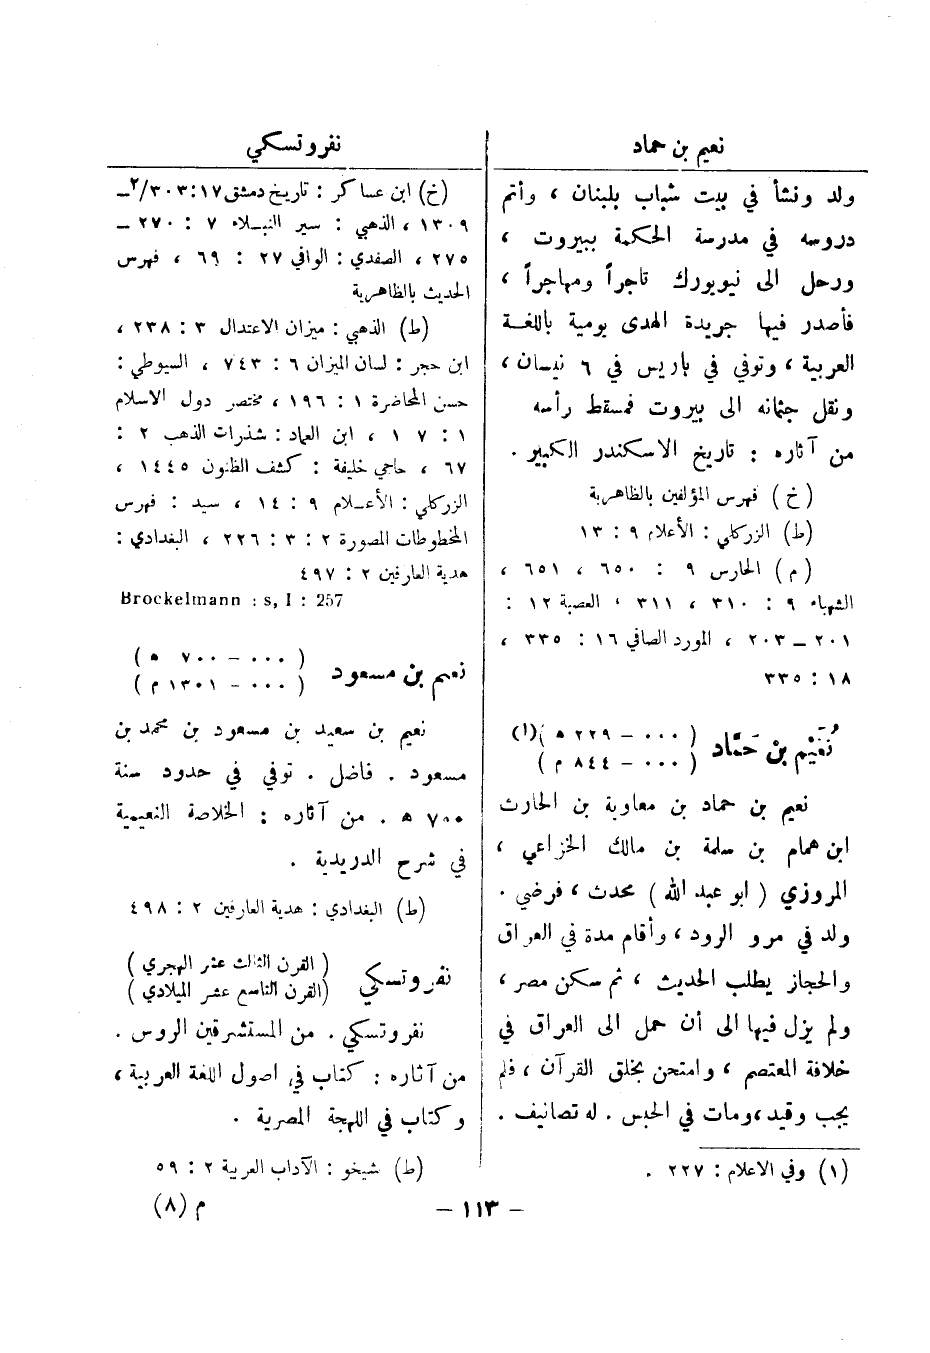 نعيم بن حماد
ولد ونشأ في بيت شباب بلبنان ، وأتم
دروسه في مدرسة الحكمة ببيروت ،
ورحل الى نيويورك تاجراً ومهاجراً ،
فأصدر فيها جريدة الهدى يومية باللغة
العربية ، وتوفي في باريس في ٦ نيسان ،
ونقل جثمانه الى بيروت فمسقط رأسه
من آثاره : تاريخ الاسكندر الكبير .
(خ) فهرس المؤلفين بالظاهرية
(ط) الزركلي : الأعلام ٩ : ١٣
(م) الحارس ٩ : ٦٥٠ ، ٦٥١ ،
الشهباء ٩ : ٣١٠ ، ٣١١ ، العصبة ١٢ :
٢٠١ ــ ٢٠٣ ، المورد الصافي ١٦ : ٣٣٥ ،
١٨ : ٣٣٥
نُعَيْم بن حَمَّاد ( ٠٠٠ – ٢٢٩ ه )(١)
( ٠٠٠ – ٨٤٤ م )
نعيم بن حماد بن معاوية بن الحارث
ابن همام بن سلمة بن مالك الخزاعي ،
المروزي ( ابو عبد الله ) محدث ، فرضي .
ولد في مرو الرود ، وأقام مدة في العراق
والحجاز يطلب الحديث ، ثم سكن مصر ،
ولم يزل فيها الى أن حمل الى العراق في
خلافة المعتصم ، وامتحن بخلق القرآن ، فلم
يجب وقيد ، ومات في الحبس . له تصانيف .
(١) وفي الاعلام : ٢٢٧ .
نفروتسكي
(خ) ابن عساكر : تاريخ دمشق ١٧ : ٣٠٣/٢ــ
١٣٠٩ ، الذهبي : سير النبلاء ٧ : ٢٧٠ ــ
٢٧٥ ، الصفدي : الوافي ٢٧ : ٦٩ ، فهرس
الحديث بالظاهرية
(ط) الذهبي : ميزان الاعتدال ٣ : ٢٣٨ ،
ابن حجر : لسان الميزان ٦ : ٧٤٣ ، السيوطي :
حسن المحاضرة ١ : ١٩٦ ، مختصر دول الاسلام
١ : ١٧ ، ابن العماد : شذرات الذهب ٢ :
٦٧ ، حاجي خليفة : كشف الظنون ١٤٤٥ ،
الزركلي : الأعلام ٩ : ١٤ ، سيد : فهرس
المخطوطات المصورة ٢ : ٣ : ٢٢٦ ، البغدادي :
هدية العارفين ٢ : ٤٩٧
Brockelmann : s, I : 257
نعيم بن مسعود ( ٠٠٠ – ٧٠٠ ه )
( ٠٠٠ – ١٣٠١ م )
نعيم بن سعيد بن مسعود بن محمد بن
مسعود . فاضل . توفي في حدود سنة
٧٠٠ ه . من آثاره : الخلاصة النعيمية
في شرح الدريدية .
(ط) البغدادي : هدية العارفين ٢ : ٤٩٨
نفروتسكي ( القرن الثالث عشر الهجري )
(القرن التاسع عشر الميلادي )
نفروتسكي . من المستشرقين الروس .
من آثاره : كتاب في اصول اللغة العربية ،
وكتاب في اللهجة المصرية .
(ط) شيخو : الآداب العربية ٢ : ٥٩
– ١١٣ –
م (٨)